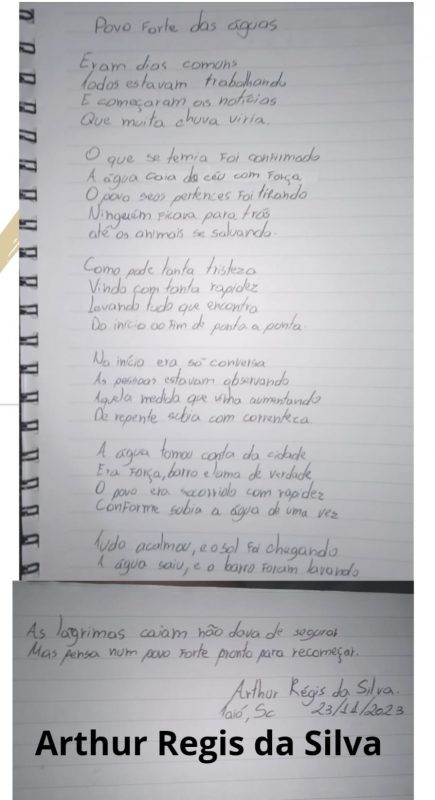 Povo Forte das águas
Eram dias comuns
Todos estavam trabalhando
E começaram as notícias
Que muita chuva viria.
O que se temia Foi confirmado
A água caia do céu com Força
O povo seus pertences Foi tirando
Ninguém Ficava para trás
até os animais se salvando.
Como pode tanta tristeza
Vindo com tanta rapidez
Levando tudo que encontra
Do início ao Fim de ponta a ponta.
No início era só conversa
As pessoas estavam observando
Aquela medida que vinha aumentando
De repente subia com correnteza.
A água tomou conta da cidade
Era Força, barro e lama de verdade,
O povo era socorrido com rapidez
Conforme subia a água de uma vez
Tudo acalmou, e o sol Foi chegando
A água saiu, e o barro Foram lavando
As lagrimas caiam não dava de segurar
Mas pensa num povo Forte pronto para recomeçar.
Arthur Régis da Silva.
Taió, Sc 23/11/2023
Arthur Regis da Silva